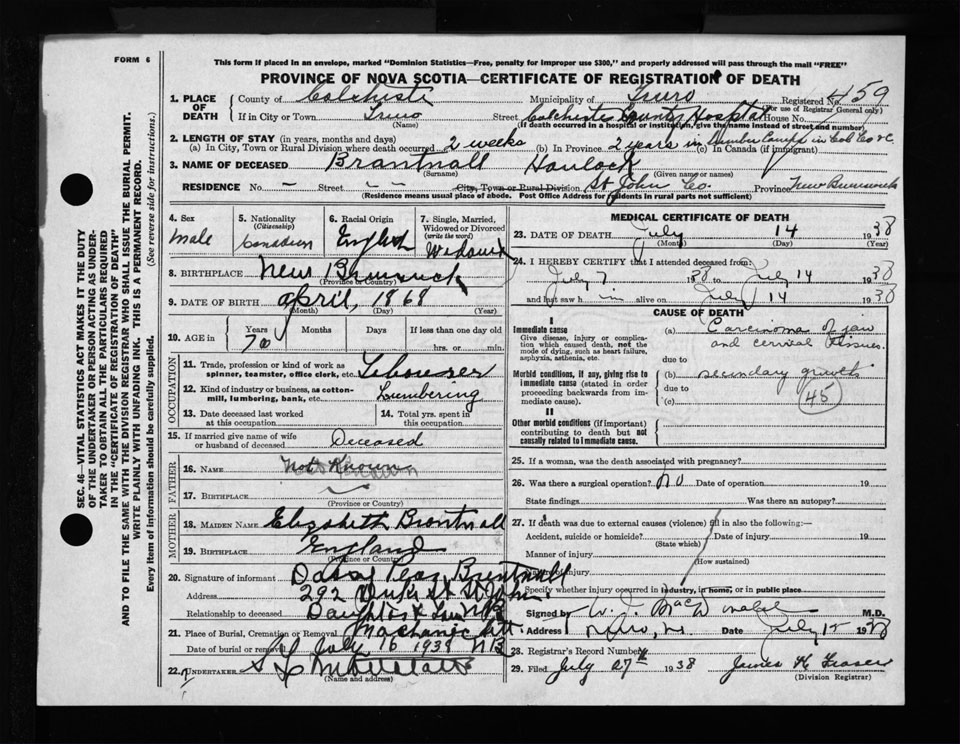 FORM 6
This form if placed in an envelope, marked "Dominion Statistics—Free, penalty for improper use $300," and properly addressed will pass through the mail "FREE"
PROVINCE OF NOVA SCOTIA—CERTIFICATE OF REGISTRATION OF DEATH
1. PLACE OF DEATH
County of Colchester Municipality of Truro Registered No. 459
(For use of Registrar General only)
If in City or Town Truro Street Colchester County Hospital House No.
(Name) (If death occurred in a hospital or institution, give the name instead of street and number)
2. LENGTH OF STAY (in years, months and days)
(a) In City, Town or Rural Division where death occurred 2 weeks (b) In Province 2 years in Lumber Camps in Col Co (c) In Canada (if immigrant)
3. NAME OF DECEASED Brantnall Havlock
(Surname) (Given name or names)
RESIDENCE No. – Street – – City, Town or Rural Division St John Co. Province New Brunswick
(Residence means usual place of abode. Post Office Address for residents in rural parts not sufficient)
4. Sex
male
5. Nationality
(Citizenship)
Canadian
6. Racial Origin
English
7. Single, Married, Widowed or Divorced
(write the word)
8. BIRTHPLACE New Brunswick
(Province or Country)
9. DATE OF BIRTH April, 1868
(Month) (Day) (Year)
10. AGE in
Years Months Days If less than one day old
70 hrs. or min.
OCCUPATION
11. Trade, profession or kind of work as spinner, teamster, office clerk, etc.
12. Kind of industry or business, as cotton-mill, lumbering, bank, etc. Lumbering
13. Date deceased last worked at this occupation
14. Total yrs. spent in this occupation
15. If married give name of wife or husband of deceased Deceased
FATHER
16. NAME Not Known
17. BIRTHPLACE
(Province or Country)
MOTHER
18. MAIDEN NAME Elizabeth Brantnall
19. BIRTHPLACE England
(Province or Country)
20. Signature of informant
Address 292 Duke St St John
Relationship to deceased Daughter in Law NB
21. Place of Burial, Cremation or Removal
Date of burial or removal July 16 1938 NB
22. UNDERTAKER
(Name and address)
MEDICAL CERTIFICATE OF DEATH
23. DATE OF DEATH July 14 1938
(Month) (Day) (Year)
24. I HEREBY CERTIFY that I attended deceased from:
July 7 1938 to July 14 1938
and last saw h im alive on July 14 1938
CAUSE OF DEATH
I
Immediate cause
Give disease, injury or complication which caused death, not the mode of dying, such as heart failure, asphyxia, asthenia, etc.
(a) Carcinoma of jaw and cervical tissues.
due to
Morbid conditions, if any, giving rise to immediate cause (stated in order proceeding backwards from immediate cause).
(b) secondary growth
due to
(c)
45
II
Other morbid conditions (if important) contributing to death but not causally related to immediate cause.
25. If a woman, was the death associated with pregnancy?
26. Was there a surgical operation? no Date of operation 19
State findings Was there an autopsy?
27. If death was due to external causes (violence) fill in also the following:—
Accident, suicide or homicide? Date of injury 19
(State which)
Manner of injury
(How sustained)
Nature of injury
Specify whether injury occurred in industry, in home, or in public place
Signed by M.D.
Address Truro, N.S. Date July 15 1938
28. Registrar's Record Number
29. Filed July 27th 1938 James H Fraser
(Division Registrar)
SEC. 46—VITAL STATISTICS ACT MAKES IT THE DUTY
OF THE UNDERTAKER OR PERSON ACTING AS UNDER-
TAKER TO OBTAIN ALL THE PARTICULARS REQUIRED
IN THE "CERTIFICATE OF REGISTRATION OF DEATH"
AND TO FILE THE SAME WITH THE DIVISION REGISTRAR WHO SHALL ISSUE THE BURIAL PERMIT.
WRITE PLAINLY WITH UNFADING INK. THIS IS A PERMANENT RECORD.
Every item of information should be carefully supplied. (See reverse side for instructions.)